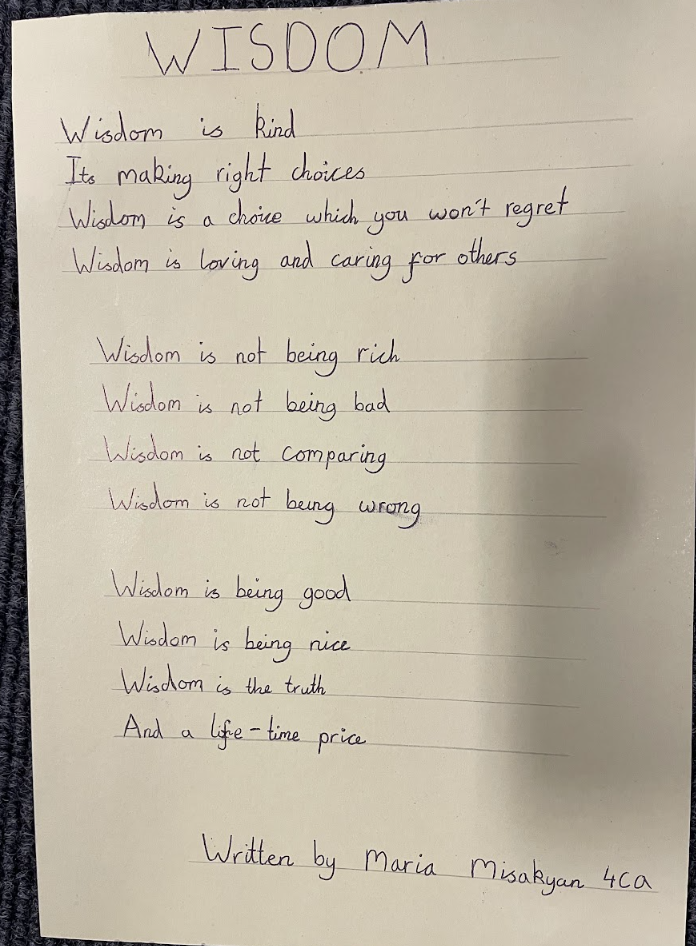 WISDOM
Wisdom is kind
Its making right choices
Wisdom is a choice which you won't regret
Wisdom is loving and caring for others
Wisdom is not being rich
Wisdom is not being bad
Wisdom is not comparing
Wisdom is not being wrong
Wisdom is being good
Wisdom is being nice
Wisdom is the truth
And a life-time price
Written by Maria Misakyan 4ca